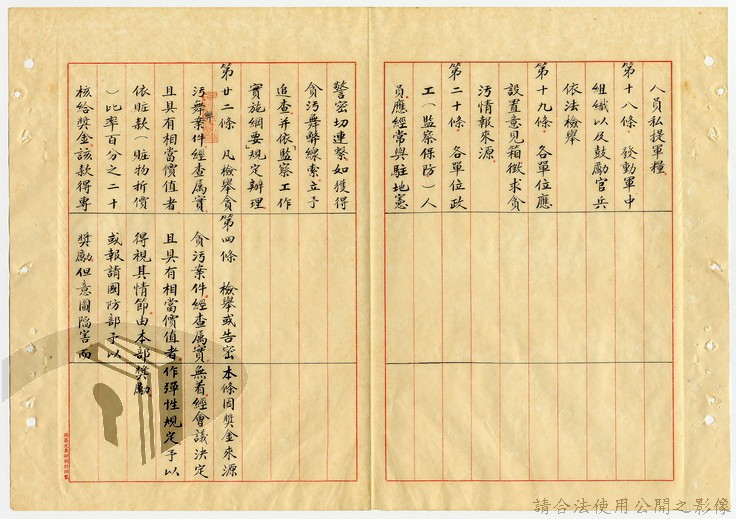 人員私提軍糧
第十八條 發動軍中
組織以及鼓勵官兵
依法檢舉
第十九條 各單位應
設置意見箱徵求貪
污情報來源
第二十條 各單位政
工(監察保防)人
員應經常與駐地憲
警密切連繫如獲得
貪污舞弊線索立予
追查并依「監察工作
實施綱要」規定辦理
第廿二條 凡檢舉貪
污舞弊案件經查属實
且具有相當價值者
依賍款(賍物折價
)比率百分之二十
核給奬金該款得專
第四條 檢舉或告密
貪污案件經查属實
且具有相當價值者
得視其情節由本部奬勵
或報請國防部予以
奬勵但意圖陷害而
本條因奬金來源
無着經會議決定
作彈性規定予以
請合法使用公開之影像